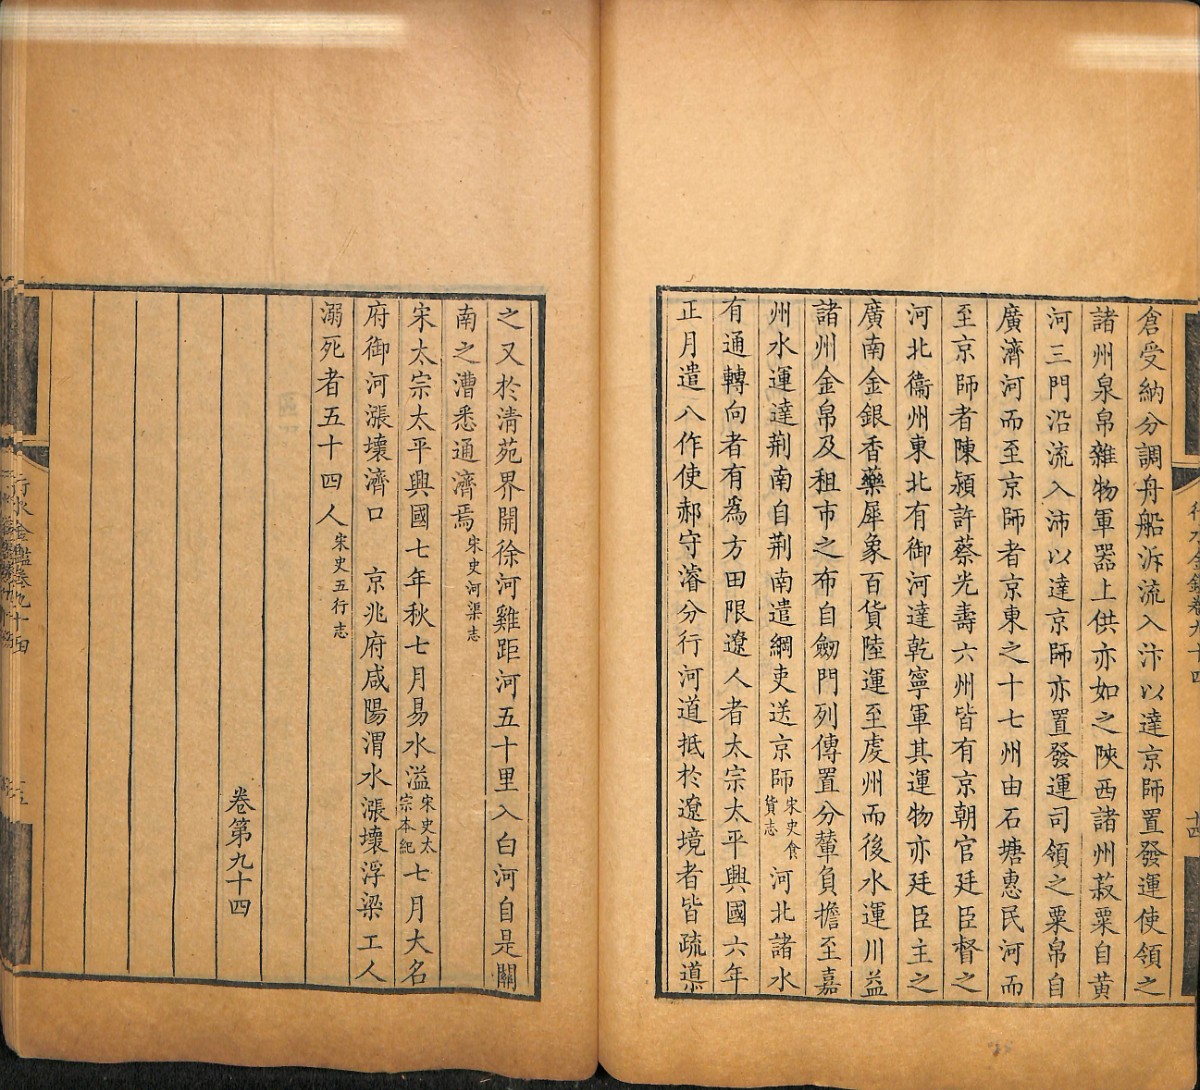 倉受納分調舟船泝流入汴以達京師置發運使領之
諸州泉帛雜物軍器上供亦如之陝西諸州菽粟自黃
河三門沿流入沛以達京師亦置發運司領之粟帛自
廣濟河而至京師者京東之十七州由石塘惠民河而
至京師者陳潁許蔡光壽六州皆有京朝官廷臣督之
河北衞州東北有御河達乾寧軍其運物亦廷臣主之
廣南金銀香藥犀象百貨陸運至虔州而後水運川益
諸州金帛及租市之布自劒門列傳置分輦負擔至嘉
州水運達荆南自荆南遣綱吏送京師宋史食貨志河北諸水
有通轉向者有爲方田限遼人者太宗太平興國六年
正月遣八作使郝守濬分行河道抵於遼境者皆疏導
行水金鑑卷九十四
十四
之又於淸苑界開徐河雞距河五十里入白河自是關
南之漕悉通濟焉宋史河渠志
宋太宗太平興國七年秋七月易水溢宋史太宗本紀七月大名
府御河漲壞濟口　京兆府咸陽渭水漲壞浮梁工人
溺死者五十四人宋史五行志
卷第九十四
行水金鑑卷九十四